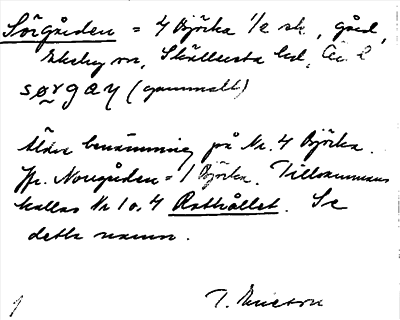 Sörgården = 4 Björka 1/2 sk., gård,
Ekeby sn, Sköllersta hd, Ör. l
sørgaɳ (gammalt)
Äldre benämning på Nr. 4 Björka.
Jfr. Norrgården = 1 Björka. Tillsammans
kallas Nr 1 o. 4 Rothållet. Se
detta namn.
T. Ericson